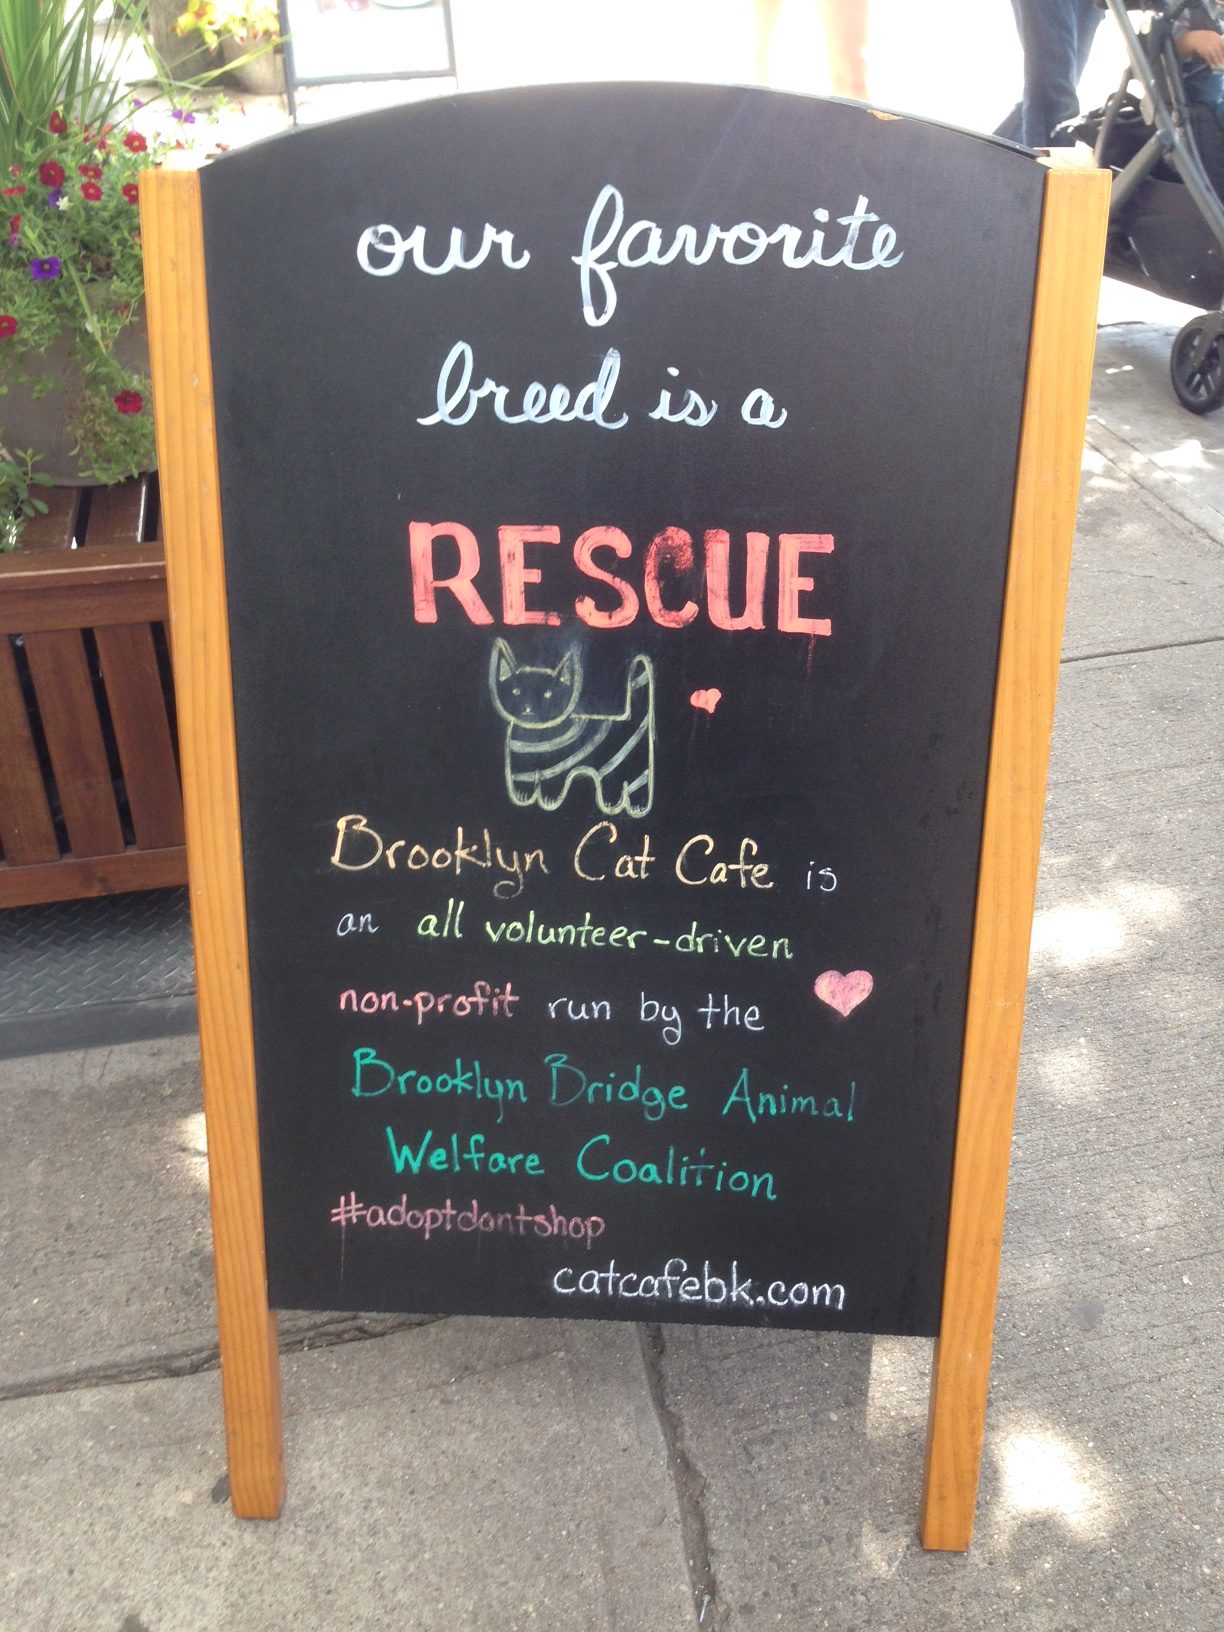 our favorite
breed is a
RESCUE
Brooklyn Cat Cafe is
an all volunteer-driven
non-profit run by the
Brooklyn Bridge Animal
Welfare Coalition
#adoptdontshop
catcafebk.com